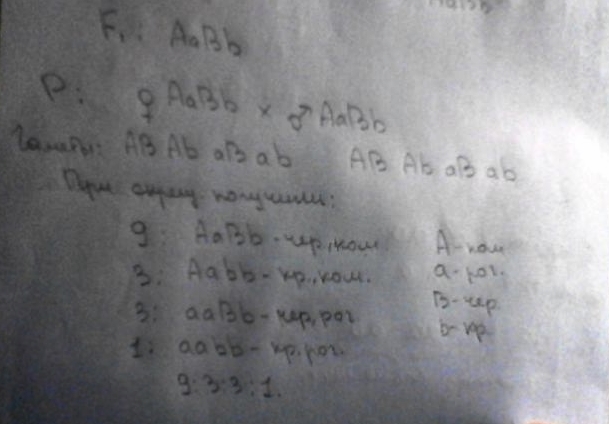 F₁: AaBb
P: ♀ AaBb × ♂ AaBb
Гаметы: AB Ab aB ab AB Ab aB ab
При скрещ. получили:
9: AaBb - чер., ком. A - ком
3: Aabb - кр., ком. a - рог.
3: aaBb - чер, рог B - чер
1: aabb - кр, рог. b - кр
9:3:3:1.